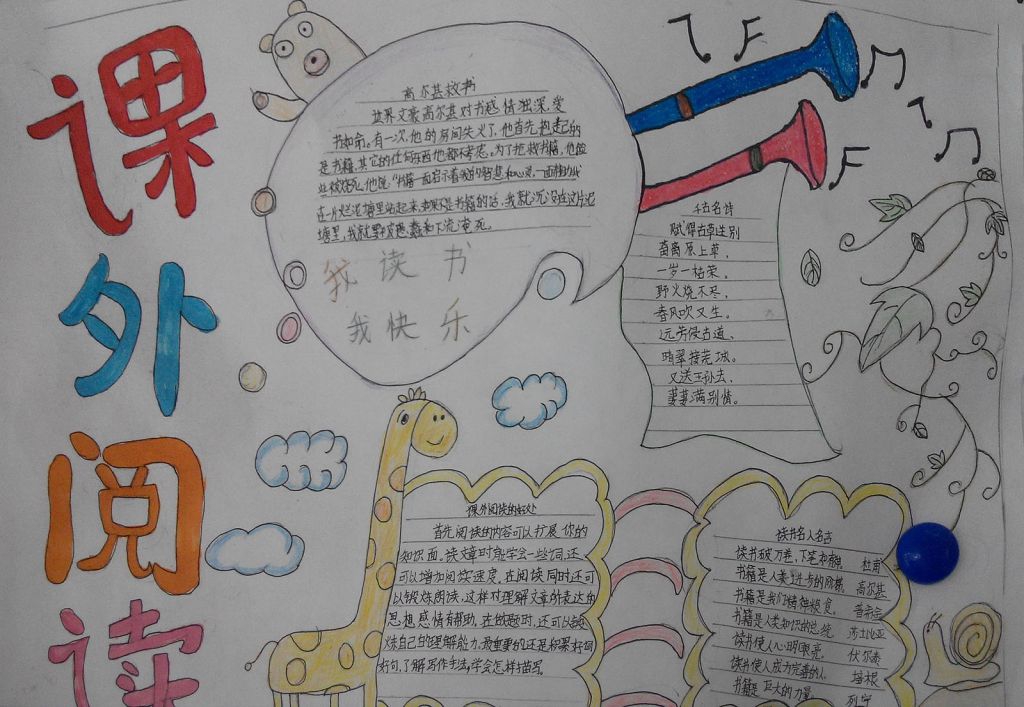 课外阅读
高尔基救书
世界文豪高尔基对书感情独深,爱
书如命。有一次,他的房间失火了,他首先抱起的
是书籍,其它的任何东西他都不考虑。为了抢救书籍,他险
些被烧死。他说:"书籍一面启示着我的智慧和心灵,一面帮助我
在一片烂泥塘里站起来,如果不是书籍的话,我就沉没在这片泥
塘里,我就要被愚蠢和下流淹死。
我读书
我快乐
千古名诗
赋得古草送别
离离原上草,
一岁一枯荣。
野火烧不尽,
春风吹又生。
远芳侵古道,
晴翠接荒城。
又送王孙去,
萋萋满别情。
课外阅读的好处
首先阅读的内容可以扩展你的
知识面。读文章时能学会一些词,还
可以增加阅读速度。在阅读同时还可
以锻炼朗读,这样对理解文章所表达的
思想感情有帮助。在做题时,还可以锻
炼自己的理解能力。最重要的还是积累好词
好句,了解写作手法,学会怎样描写。
读书名人名言
读书破万卷,下笔如有神。 杜甫
书籍是人类进步的阶梯。 高尔基
书籍是我们精神粮食。 普希金
书籍是人类知识的总统。 莎士比亚
读书使人心明眼亮。 伏尔泰
读书使人成为完善的人。 培根
书籍是巨大的力量。 列宁